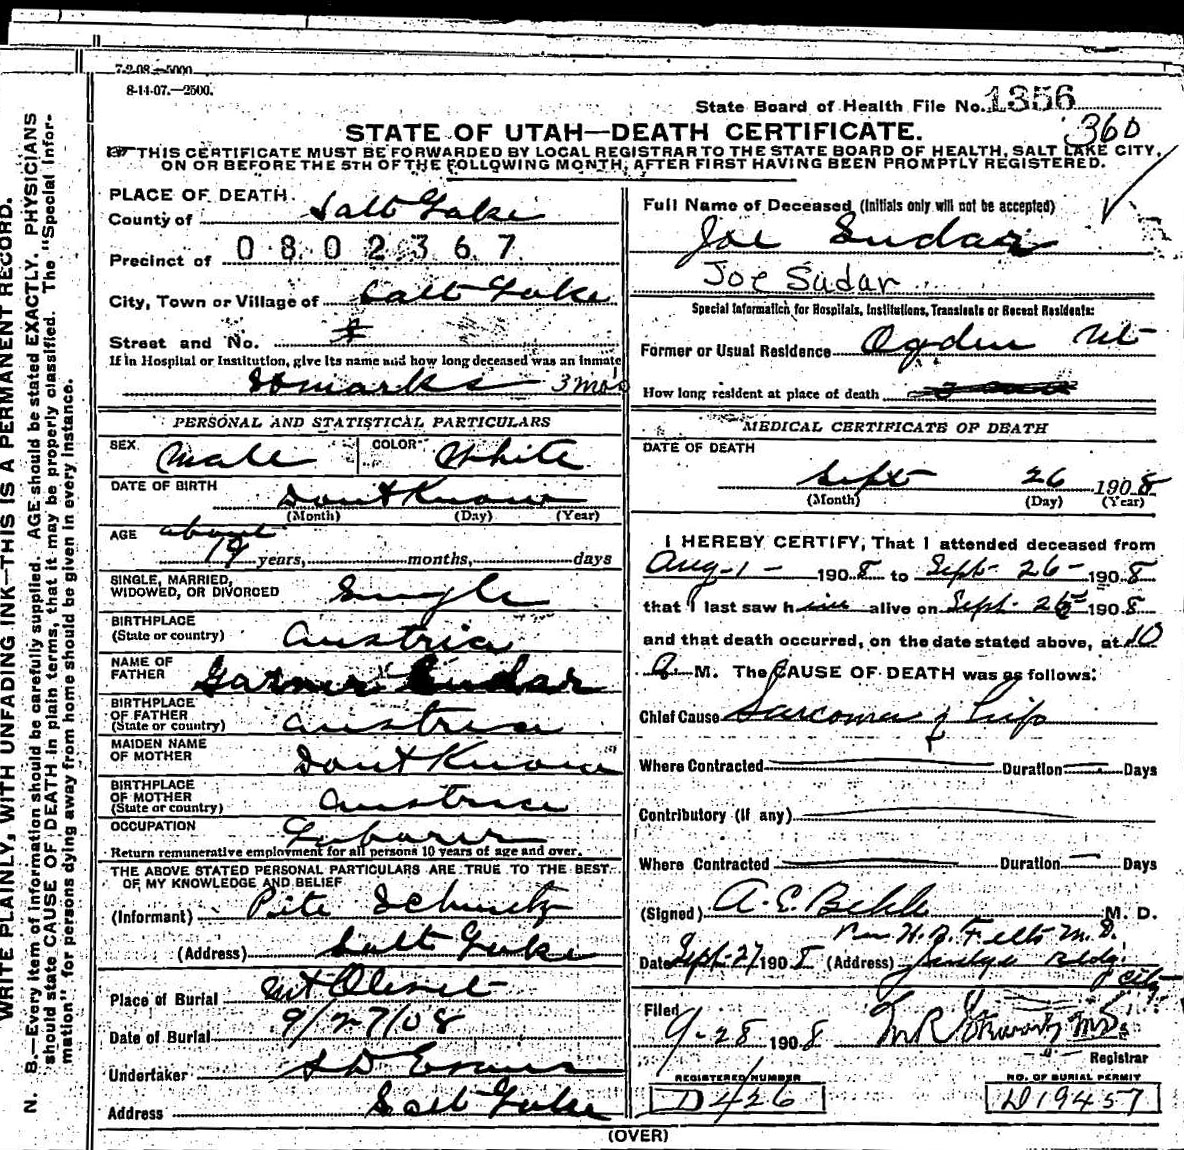 7-2-08.—5000
8-14-07.—2500.
State Board of Health File No. 1356
360
STATE OF UTAH—DEATH CERTIFICATE.
THIS CERTIFICATE MUST BE FORWARDED BY LOCAL REGISTRAR TO THE STATE BOARD OF HEALTH, SALT LAKE CITY,
ON OR BEFORE THE 5TH OF THE FOLLOWING MONTH, AFTER FIRST HAVING BEEN PROMPTLY REGISTERED.
WRITE PLAINLY, WITH UNFADING INK—THIS IS A PERMANENT RECORD.
N. B.—Every item of information should be carefully supplied. AGE should be stated EXACTLY. PHYSICIANS
should state CAUSE OF DEATH in plain terms, that it may be properly classified. The "Special Infor-
mation" for persons dying away from home should be given in every instance.
PLACE OF DEATH.
County of Salt Lake
Precinct of 0802367
City, Town or Village of Salt Lake
Street and No.
If in Hospital or Institution, give its name and how long deceased was an inmate
St Marks 3 mo's
PERSONAL AND STATISTICAL PARTICULARS
SEX Male COLOR White
DATE OF BIRTH
Dont Know
(Month) (Day) (Year)
AGE about
19 years, months, days
SINGLE, MARRIED,
WIDOWED, OR DIVORCED Single
BIRTHPLACE
(State or country) Austria
NAME OF
FATHER Sudar
BIRTHPLACE
OF FATHER
(State or country) Austria
MAIDEN NAME
OF MOTHER Dont Know
BIRTHPLACE
OF MOTHER
(State or country) Austria
OCCUPATION Laborer
Return remunerative employment for all persons 10 years of age and over.
THE ABOVE STATED PERSONAL PARTICULARS ARE TRUE TO THE BEST
OF MY KNOWLEDGE AND BELIEF
(Informant) Pete Schmitz
(Address) Salt Lake
Place of Burial Mt Olivet
Date of Burial 9/27/08
Undertaker S D Evans
Address Salt Lake
Full Name of Deceased (Initials only will not be accepted)
Joe Sudar
Joe Sudar
Special Information for Hospitals, Institutions, Transients or Recent Residents:
Former or Usual Residence Ogden Ut
How long resident at place of death
MEDICAL CERTIFICATE OF DEATH
DATE OF DEATH
Sept 26 1908
(Month) (Day) (Year)
I HEREBY CERTIFY, That I attended deceased from
Aug-1- 1908 to Sept- 26- 1908
that I last saw him alive on Sept- 26 1908
and that death occurred, on the date stated above, at 10
a M. The CAUSE OF DEATH was as follows:
Chief Cause Sarcoma of hip
Where Contracted Duration Days
Contributory (If any)
Where Contracted Duration Days
(Signed) A. E. M. D.
Per H. B. Felts M.D.
Date Sept-27 1908 (Address) Judge Bldg.
City
Filed
9-28-1908 M.D.
Registrar
REGISTERED NUMBER
D426
NO. OF BURIAL PERMIT
D19457
(OVER)